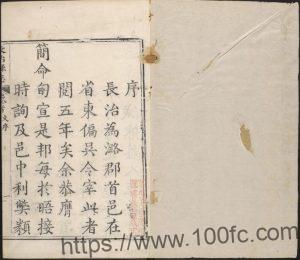 序
長治為潞郡首邑在
省東偏吳令宰此者
閱五年矣余恭膺
簡命旬宣是邦每於晤接
時詢及邑中利弊類
https://www.100fc.com